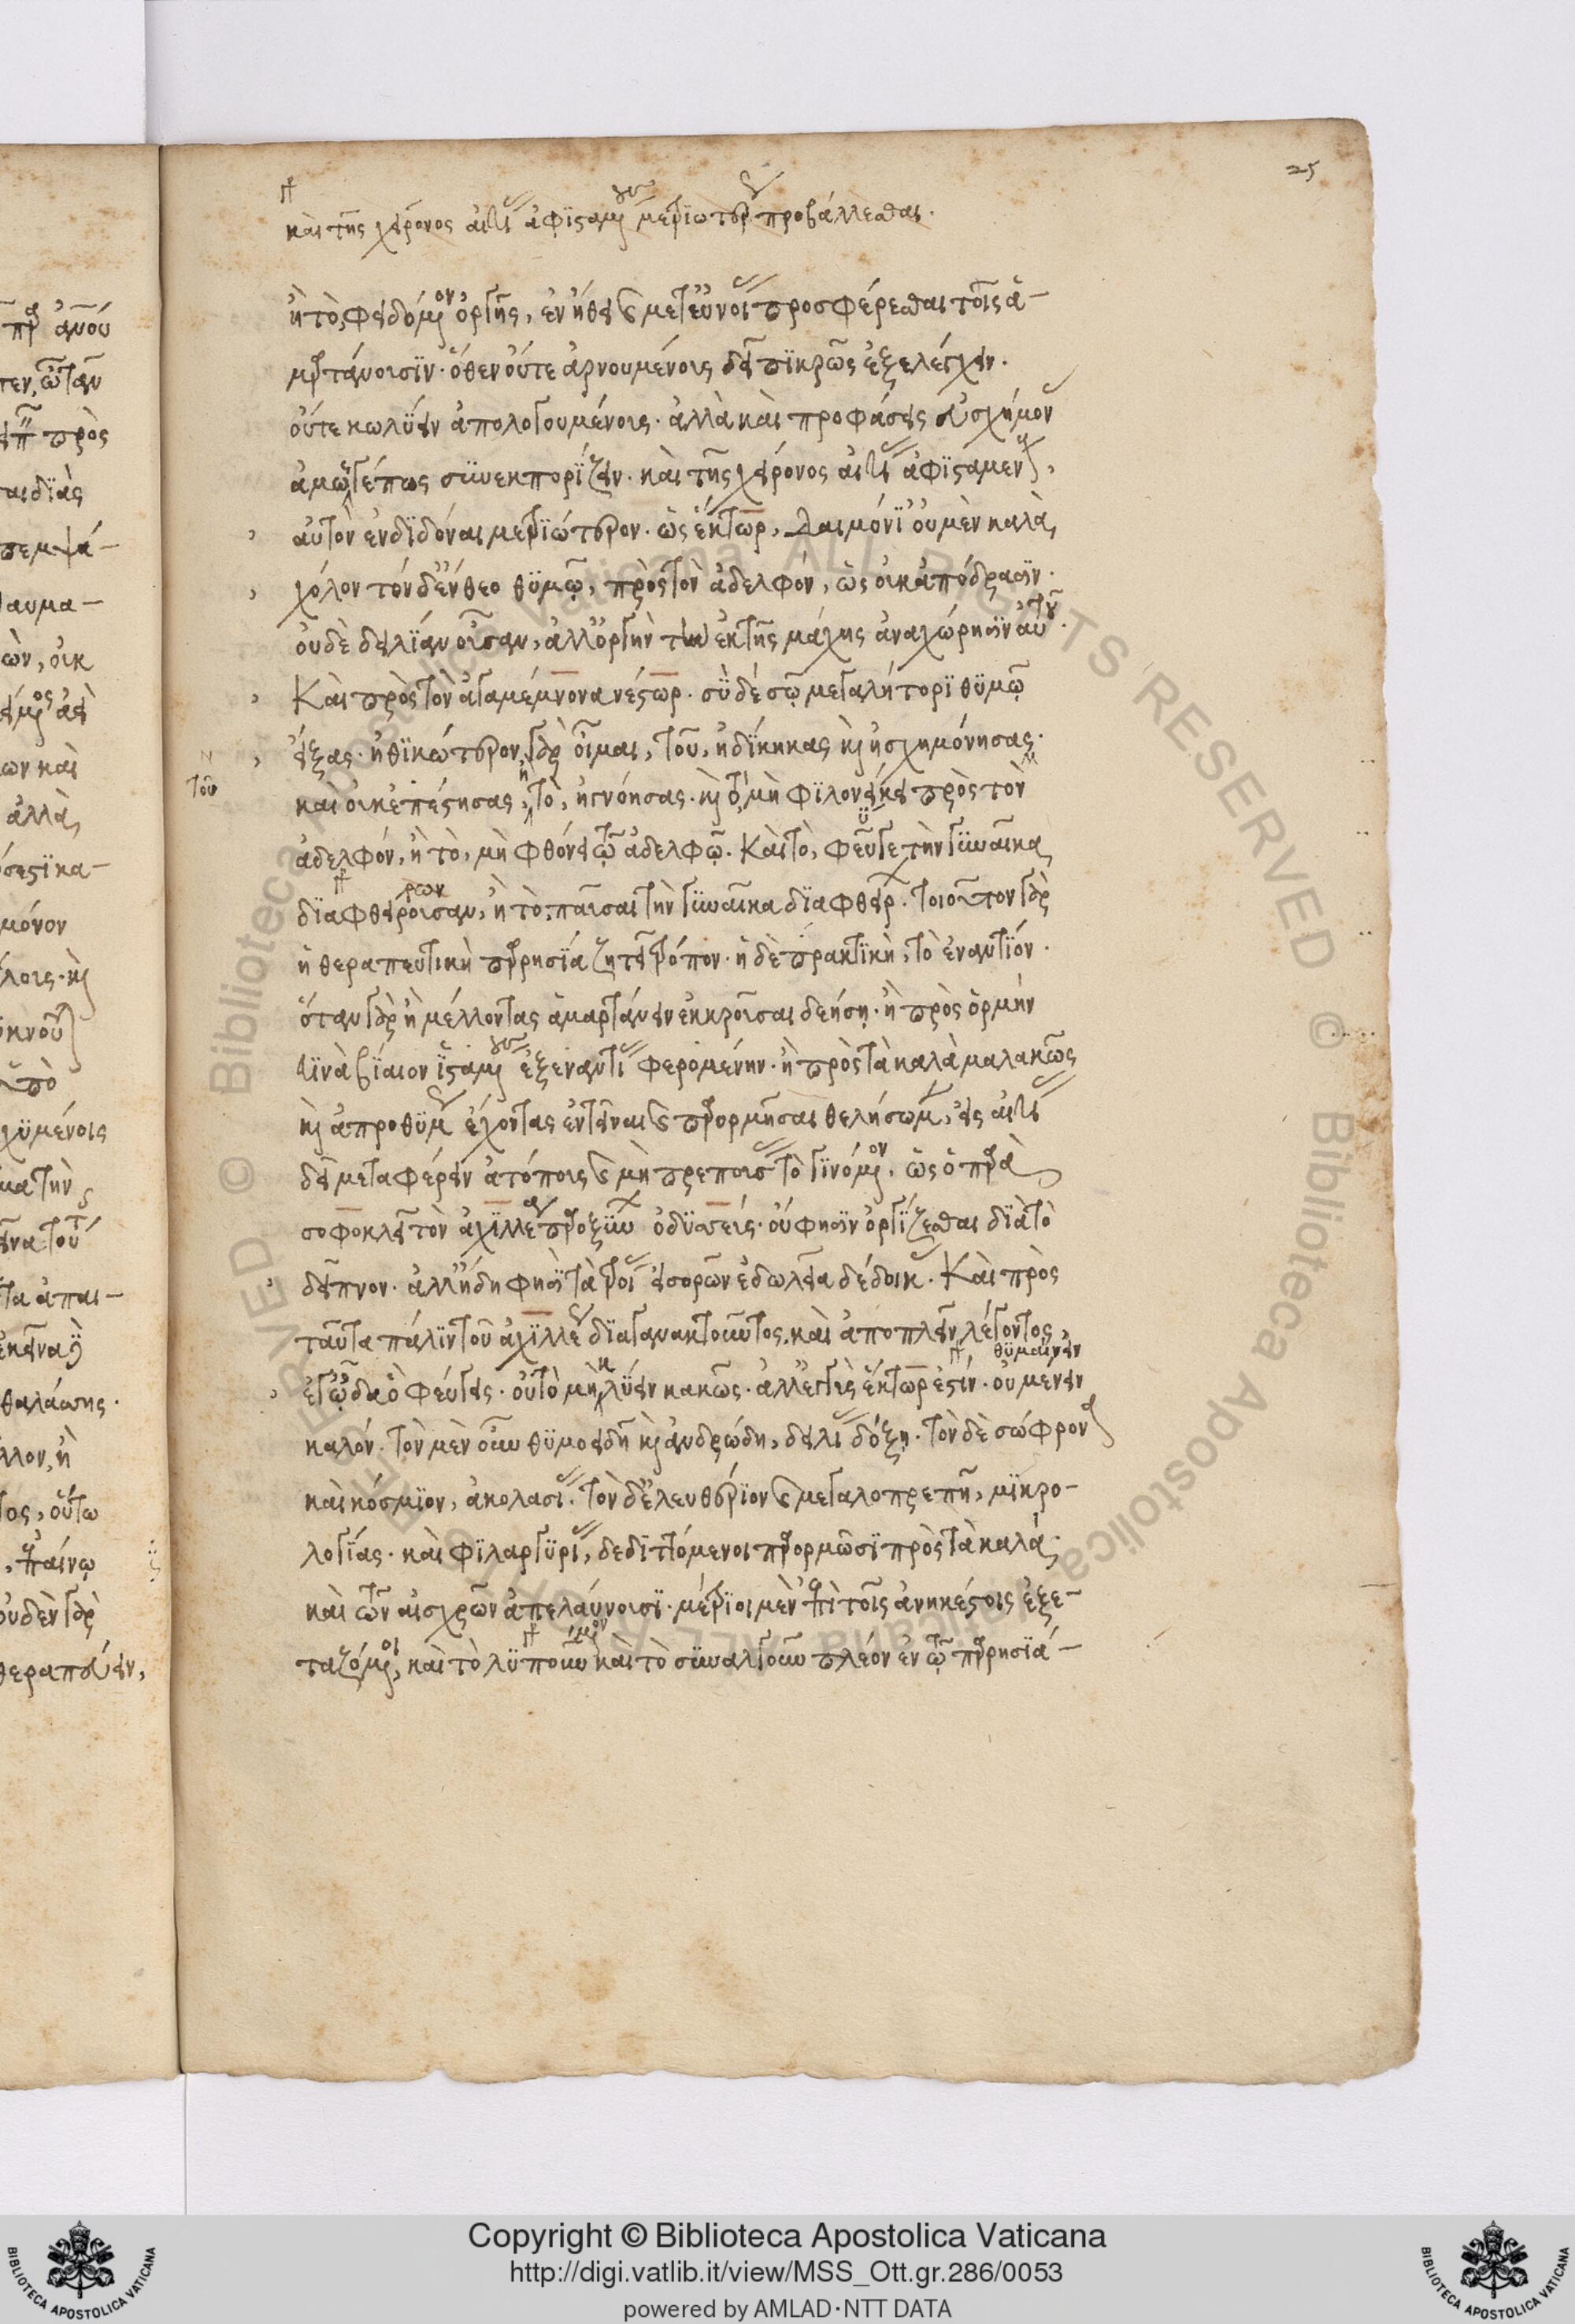 25
καὶ τῆς χείρονος αἰτίας ἀφϊσταμένους μετριωτέραν προβάλλεσθαι.
ἢ τὸ, φειδόμενον ὀργῆς, ἐν ἤθει καὶ μετ' εὐνοίας προσφέρεσθαι τοῖς ἁ-
μαρτάνουσϊν· ὅθεν οὔτε ἀρνουμένοις δεῖ πϊκρῶς ἐξελέγχειν.
οὔτε κωλύειν ἀπολογουμένοις· ἀλλὰ καὶ προφάσεις εὐσχήμονας
ἀμωσγέπως συνεκπορίζειν. καὶ τῆς χείρονος αἰτίας ἀφϊσταμένους,
αὐτὸν ἐνδϊδόναι μετριώτερον. ὡς ἕκτωρ, δαιμόνϊ' οὐ μὲν καλὰ
χόλον τόνδ' ἔνθεο θϋμῷ, πρὸς τὸν ἀδελφόν, ὡς οὐκ ἀπόδρασϊν.
οὐδὲ δειλίαν οὖσαν, ἀλλ' ὀργὴν τὴν ἐκ τῆς μάχης ἀναχώρησϊν αὐτοῦ.
Καὶ πρὸς τὸν ἀγαμέμνονα νέστωρ. σὺ δέ σῷ μεγαλήτορϊ θϋμῷ
εἴξας. ἠθϊκώτερον γὰρ οἶμαι, τοῦ, ἠδίκηκας καὶ ἠσχημόνησας.
τοῦ
καὶ οὐκ ἐπέστησας, ἢ τὸ, ἠγνόησας. καὶ τὸ, μὴ φϊλονείκει πρὸς τὸν
ἀδελφόν, ἢ τὸ, μὴ φθόνει τῷ ἀδελφῷ. Καὶ τὸ, φεῦγε τὴν γυναῖκα
δϊαφθείρουσαν, ἢ τὸ, παῦσαι τὴν γυναῖκα δϊαφθείρων. τοιοῦτον γὰρ
ἡ θεραπευτϊκὴ παρρησία ζητεῖ τρόπον. ἡ δὲ πρακτϊκὴ, τὸ ἐναντίον.
ὅταν γὰρ ἢ μέλλοντας ἁμαρτάνειν ἐκκροῦσαι δεήσῃ. ἢ πρὸς ὁρμήν
τινὰ βίαιον ἱσταμένους ἐξεναντίας φερομένην. ἢ πρὸς τὰ καλὰ μαλακῶς
καὶ ἀπροθύμως ἔχοντας ἐντεῖναι καὶ παρορμῆσαι θελήσωμεν, εἰς αἰτίας
δεῖ μεταφέρειν ἀτόπους καὶ μὴ πρεπούσας τὸ γινόμενον. ὡς ὁ παρὰ
σοφοκλεῖ τὸν ἀχϊλλέα παροξύνων ὀδϋσσεύς. οὔ φησϊν ὀργίζεσθαι δϊὰ τὸ
δεῖπνον. ἀλλ' ἤδη φησὶ τὰ τροίας εἰσορῶν ἑδώλια δέδοικας. Καὶ πρὸς
ταῦτα πάλϊν τοῦ ἀχϊλλέως δϊαγανακτοῦντος, καὶ ἀποπλεῖν λέγοντος,
θϋμαίνειν
ἐγῷδα ὃ φεύγεις. οὐ τὸ μὴ κλύειν κακῶς. ἀλλ' ἐγγὺς ἕκτωρ ἐστίν. οὐ μένειν
καλόν. τὸν μὲν οὖν θϋμοειδῆ καὶ ἀνδρώδη, δειλίας δόξῃ. τὸν δὲ σώφρονα
καὶ κόσμϊον, ἀκολασίας. τὸν δ' ἐλευθέριον καὶ μεγαλοπρεπῆ, μϊκρο-
λογίας. καὶ φϊλαργυρίας, δεδϊττόμενοι παρορμῶσϊ πρὸς τὰ καλά.
καὶ τῶν αἰσχρῶν ἀπελαύνουσϊ. μέτρϊοι μὲν ἐπὶ τοῖς ἀνηκέστοις ἐξε-
ταζόμενοι, καὶ τὸ λϋπούμενον καὶ τὸ συναλγοῦν πλέον ἐν τῷ παρρησϊά-
© Biblioteca Apostolica Vaticana ALL RIGHTS RESERVED © Biblioteca Apostolica Vaticana ALL RIGHTS RESERVED
Copyright © Biblioteca Apostolica Vaticana
http://digi.vatlib.it/view/MSS_Ott.gr.286/0053
powered by AMLAD·NTT DATA
BIBLIOTECA APOSTOLICA VATICANA
BIBLIOTECA APOSTOLICA VATICANA